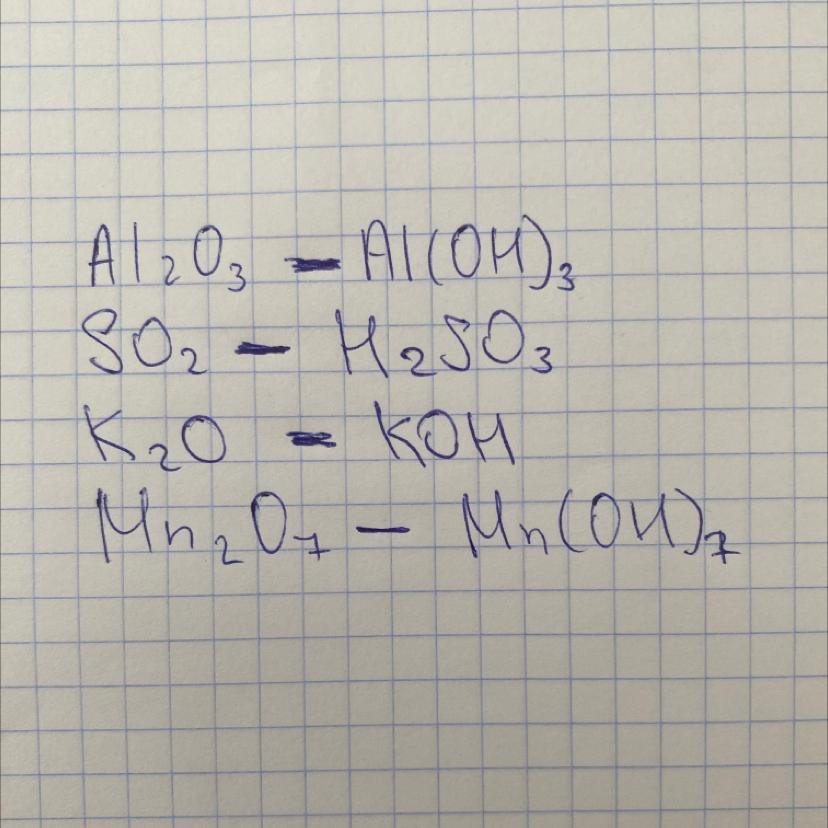 Al₂O₃ - Al(OH)₃
SO₂ - H₂SO₃
K₂O - KOH
Mn₂O₇ - Mn(OH)₇